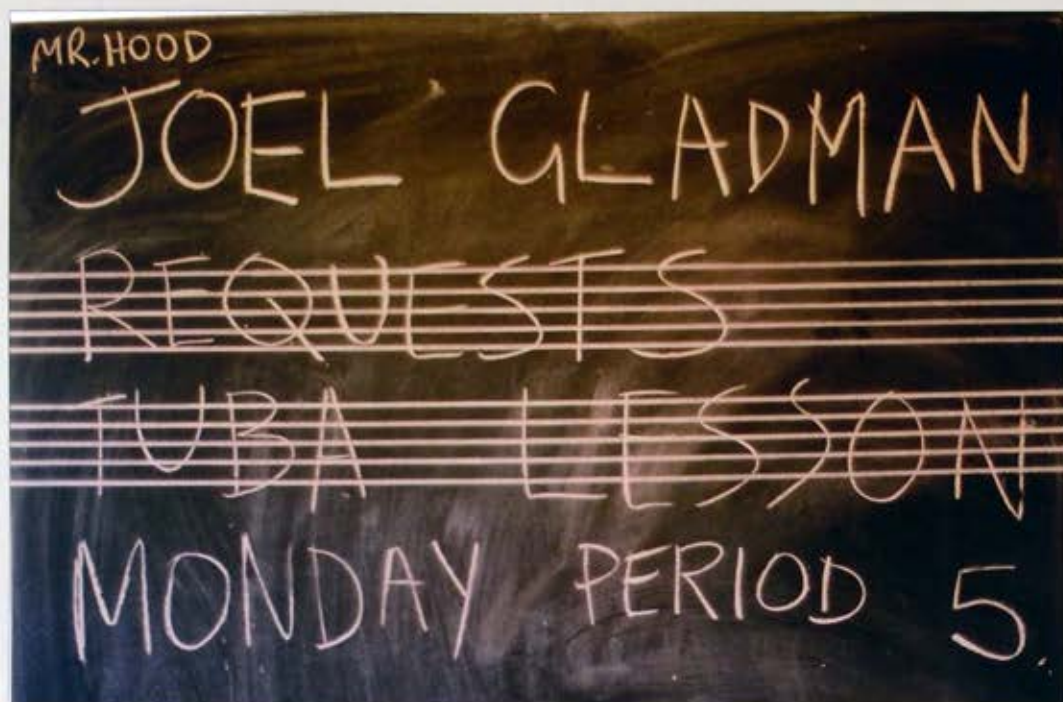 MR. HOOD
JOEL GLADMAN
REQUESTS
TUBA LESSON
MONDAY PERIOD 5